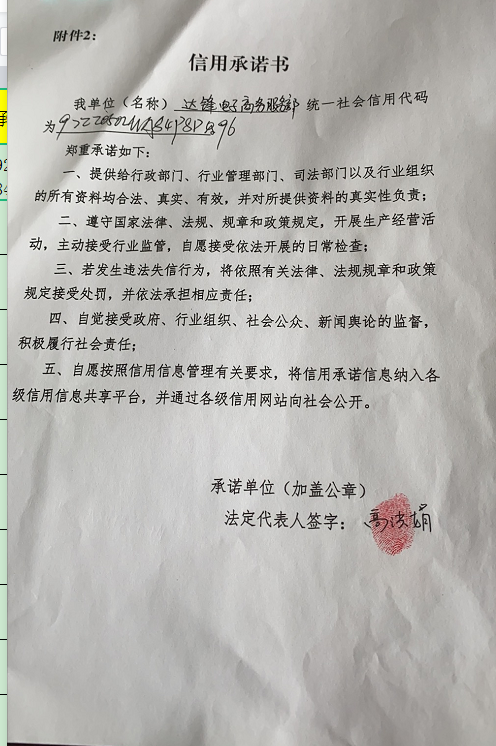 附件2：
信用承诺书
我单位（名称）达锋电子商务服务部 统一社会信用代码
为
郑重承诺如下：
一、提供给行政部门、行业管理部门、司法部门以及行业组织
的所有资料均合法、真实、有效，并对所提供资料的真实性负责；
二、遵守国家法律、法规、规章和政策规定，开展生产经营活
动，主动接受行业监管，自愿接受依法开展的日常检查；
三、若发生违法失信行为，将依照有关法律、法规规章和政策
规定接受处罚，并依法承担相应责任；
四、自觉接受政府、行业组织、社会公众、新闻舆论的监督，
积极履行社会责任；
五、自愿按照信用信息管理有关要求，将信用承诺信息纳入各
级信用信息共享平台，并通过各级信用网站向社会公开。
承诺单位（加盖公章）
法定代表人签字：